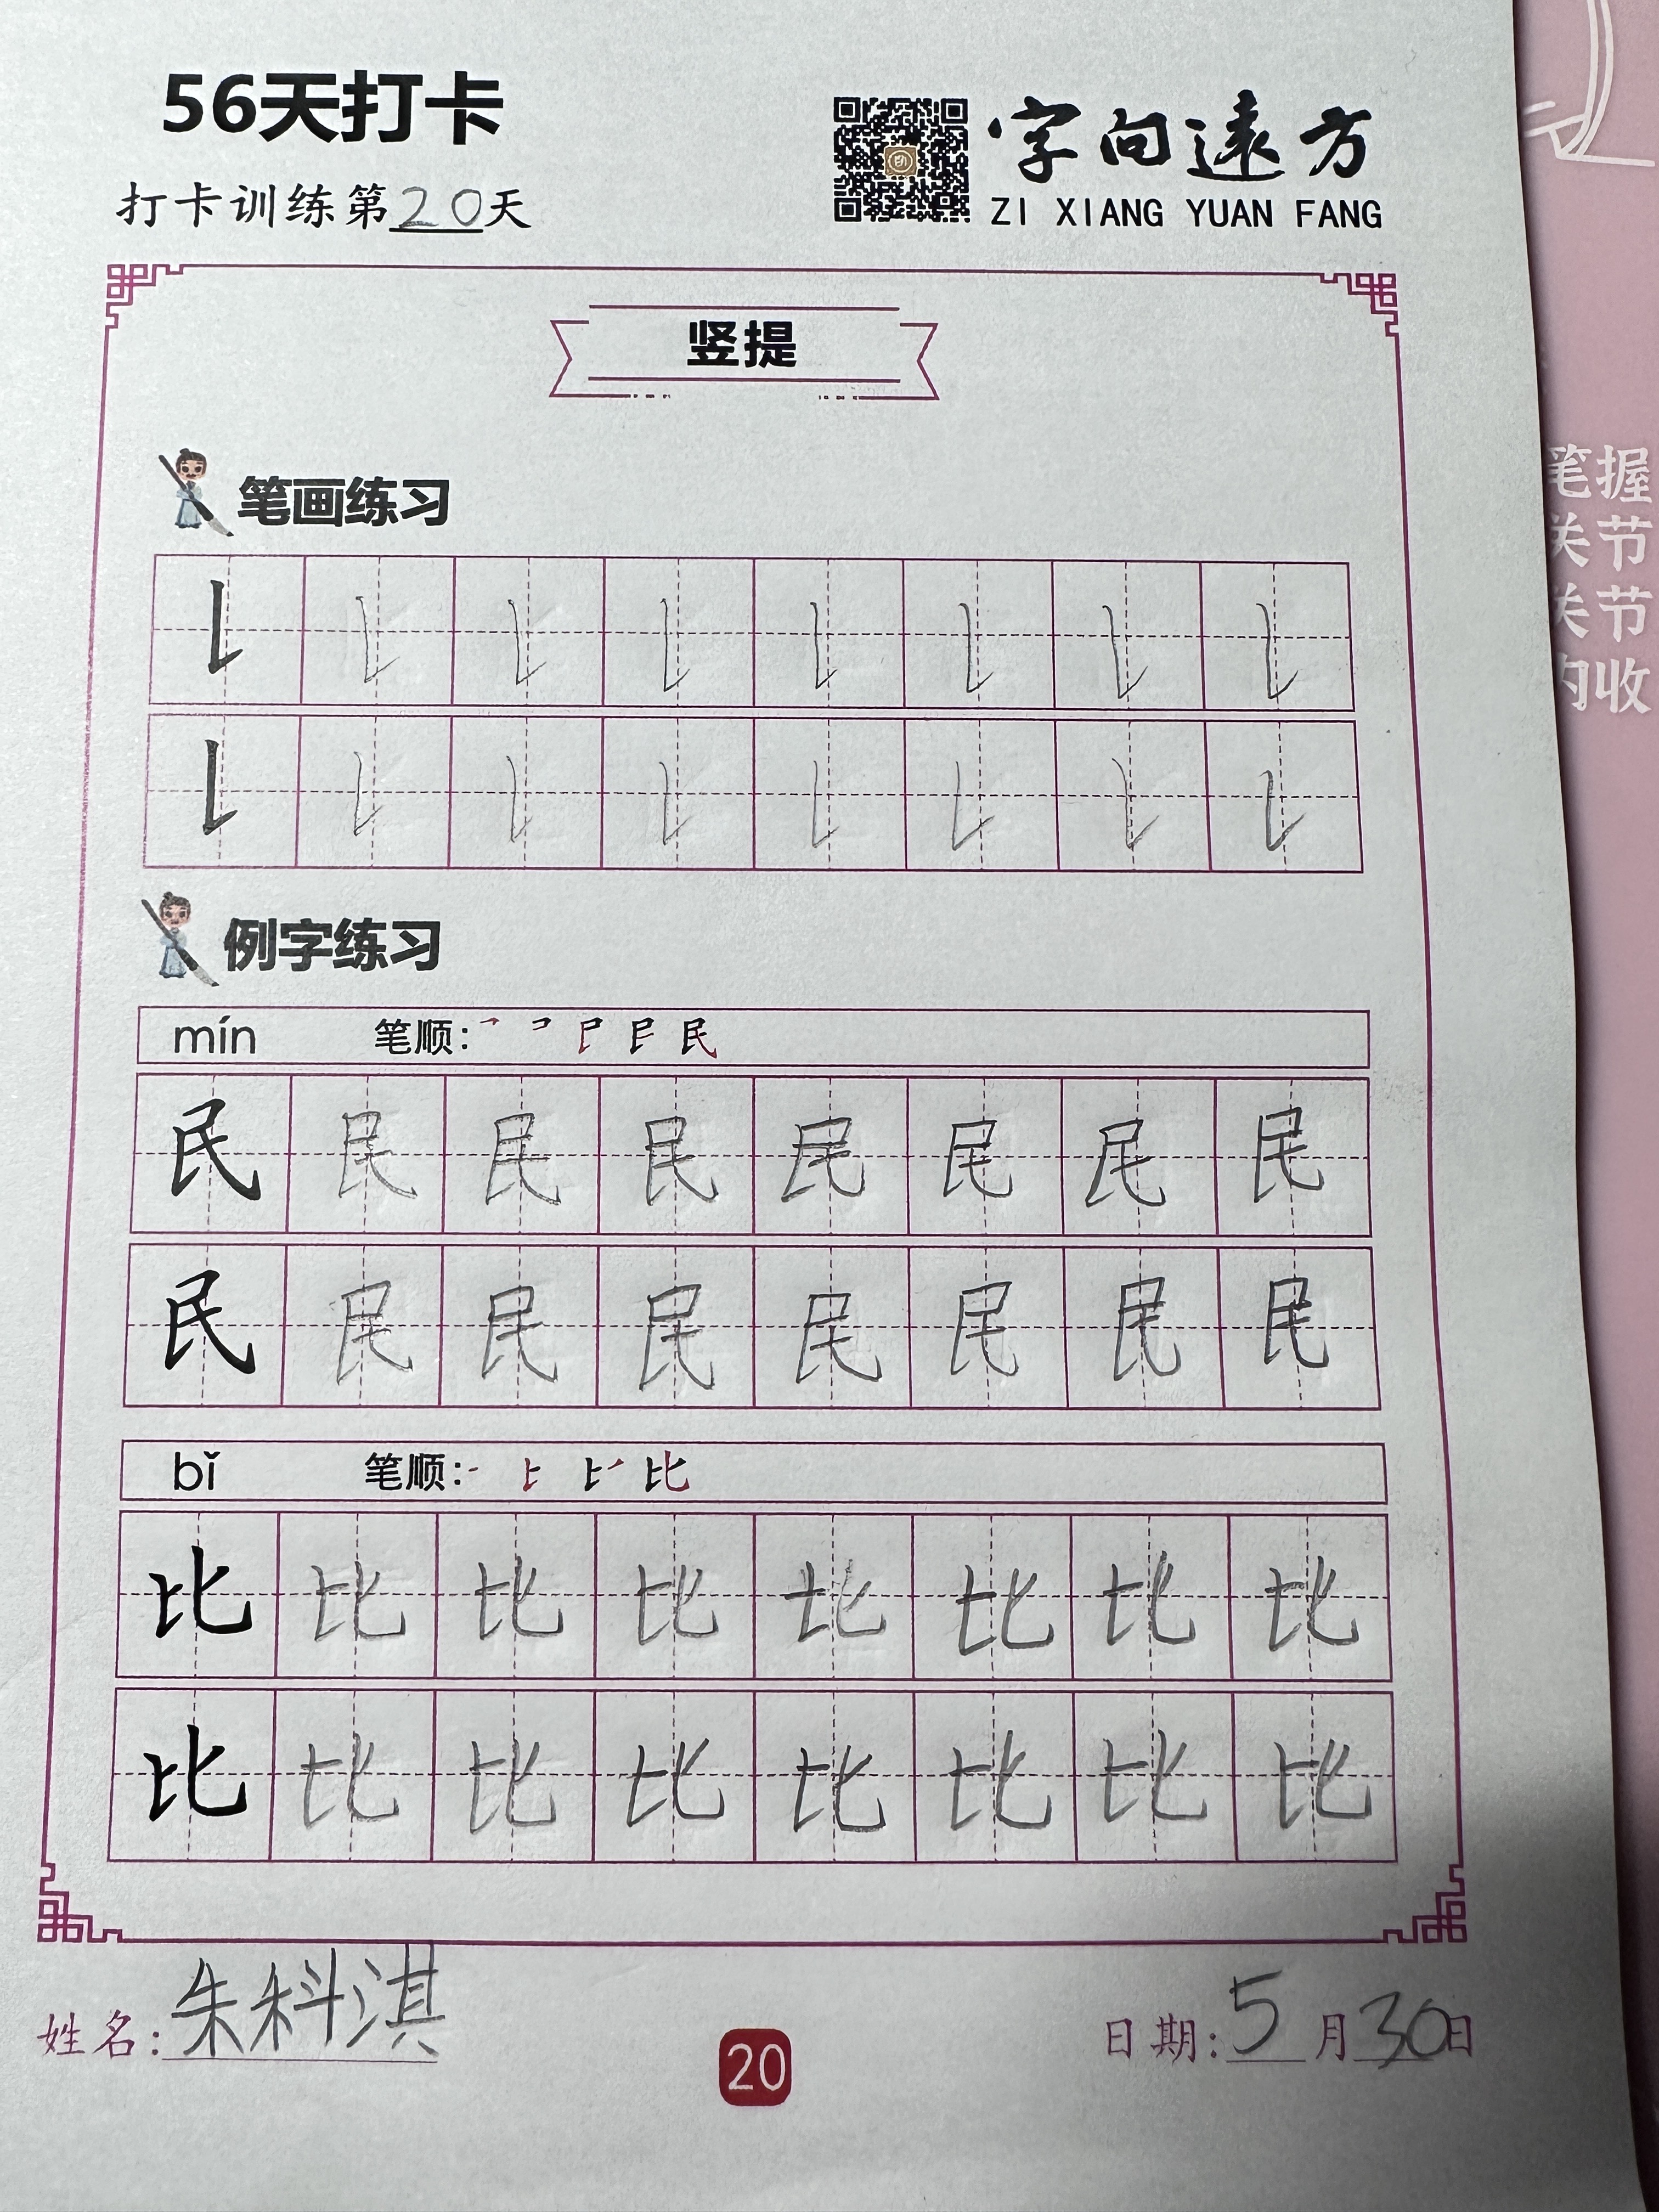 56天打卡
打卡训练第20天
字向遠方
ZI XIANG YUAN FANG
竖提
笔画练习
例字练习
mín 笔顺:
民 民 民 民 民 民 民 民
民 民 民 民 民 民 民 民
bǐ 笔顺:
比 比 比 比 比 比 比 比
比 比 比 比 比 比 比 比
姓名:朱科淇
20
日期:5月30日
笔握
关节
关节
内收